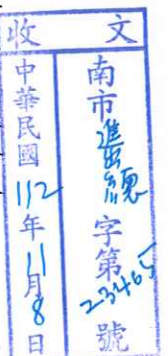 收文
南市進總字第23465號
中華民國112年11月8日